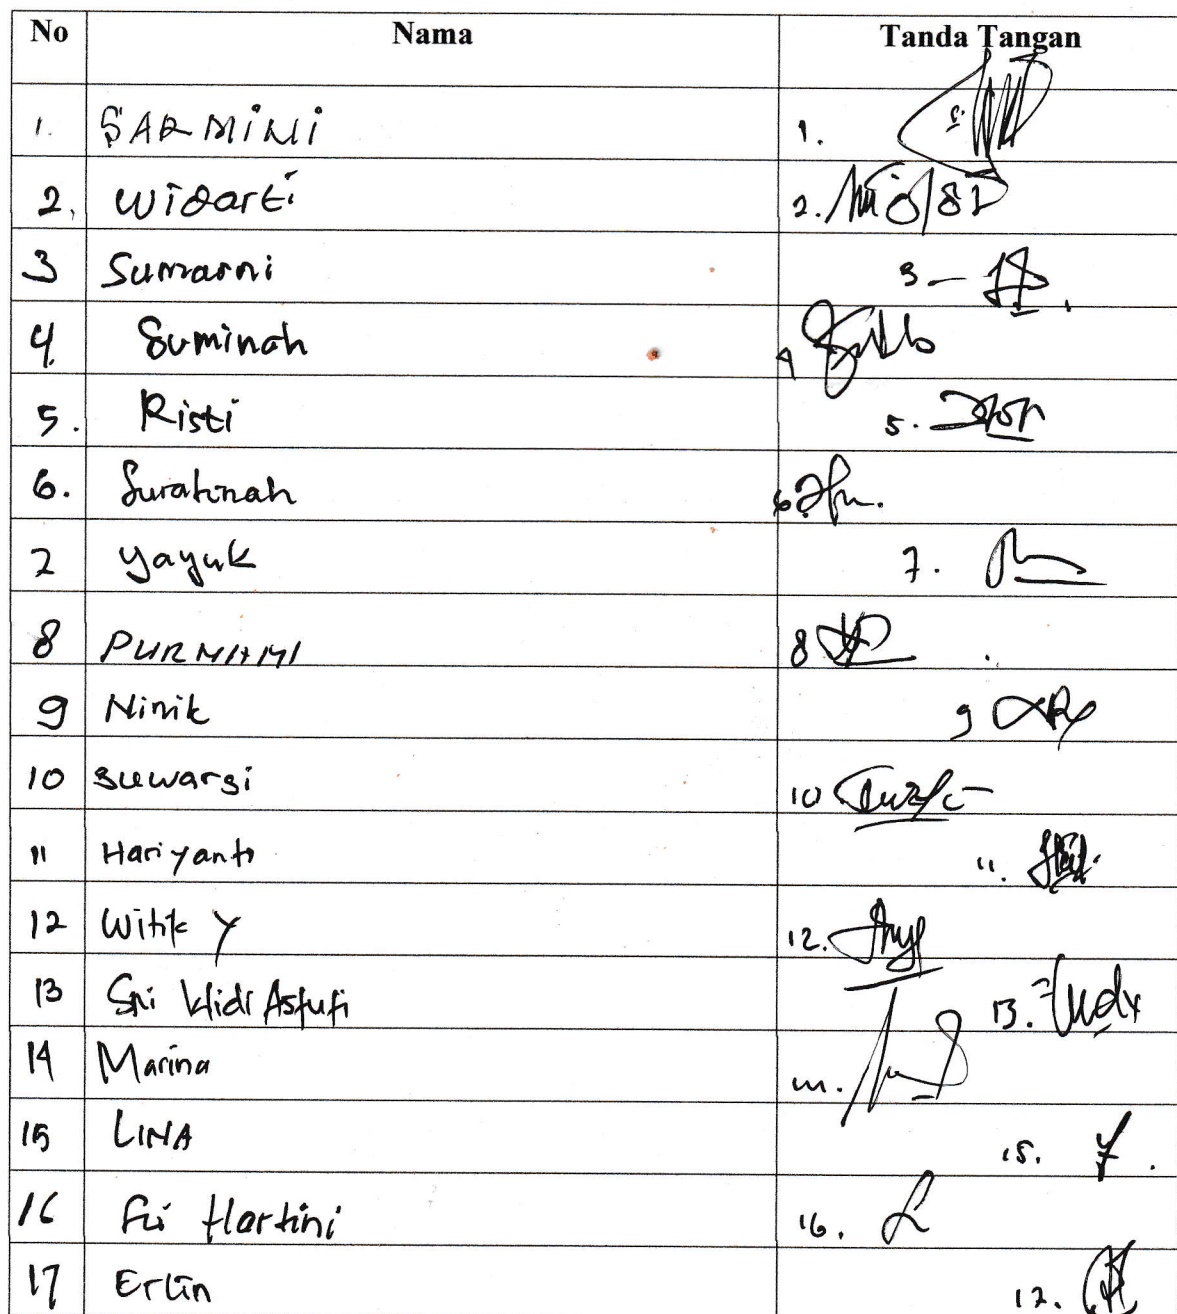 No Nama Tanda Tangan
1. SARMINI 1.
2. Widarti 2.
3 Sumarni 3
4. Suminah 4
5. Risti 5.
6. Suratinah 6
7 Yayuk 7.
8 PURNAMI 8
9 Ninik 9
10 suwarsi 10
11 Hariyanti 11.
12 Witik Y 12.
13 Sri Widi Astuti 13.
14 Marina 14.
15 LINA 15.
16 Sri Hartini 16.
17 Erlin 17.